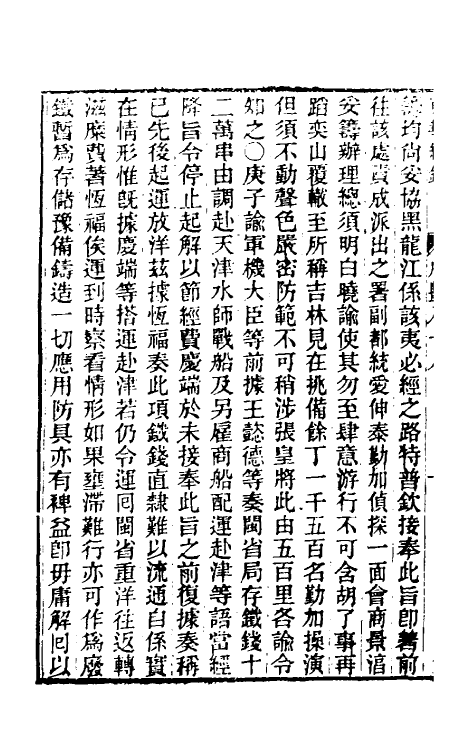 均尙妥協黑龍江係該夷必經之路特普欽接奉此旨卽著前
往該處責成派出之署副都統愛伸泰勤加偵探一面會商景淯
妥籌辦理總須明白曉諭使其勿至肆意游行不可含胡了事再
蹈奕山覆轍至所稱吉林見在挑備餘丁一千五百名勤加操演
但須不動聲色嚴密防範不可稍涉張皇將此由五百里各諭令
知之○庚子諭軍機大臣等前據王懿德等奏閩省局存鐵錢十
二萬串由調赴天津水師戰船及另雇商船配運赴津等語當經
降旨令停止起解以節經費慶端於未接奉此旨之前復據奏稱
已先後起運放洋茲據恆福奏此項鐵錢直隸難以流通自係實
在情形惟旣據慶端等搭運赴津若仍令運囘閩省重洋往返轉
滋糜費著恆福俟運到時察看情形如果壅滯難行亦可作爲廢
鐵暫爲存儲豫備鑄造一切應用防具亦有裨益卽毋庸解囘以